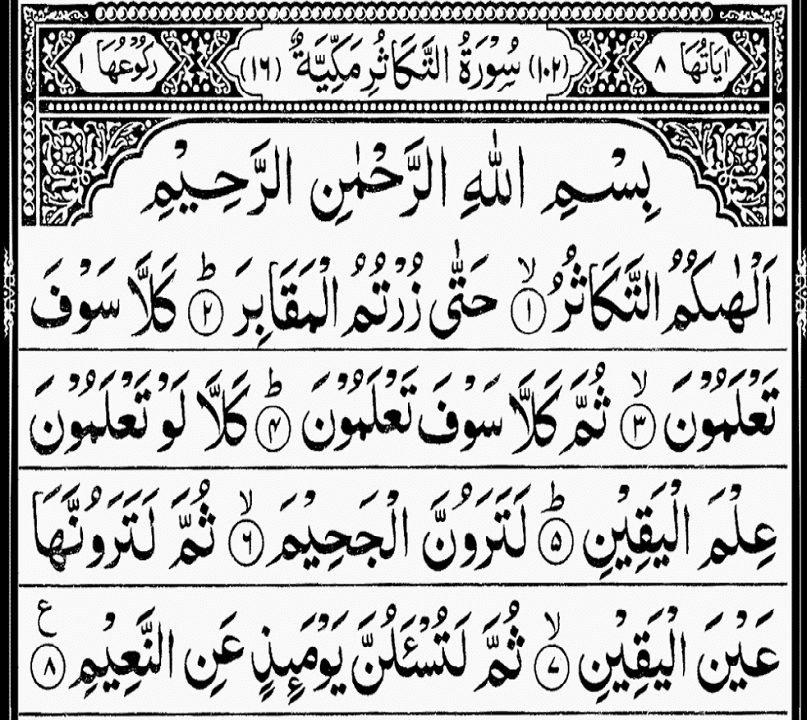 اٰیَاتُهَا ٨ (١٠٢) سُوْرَةُ التَّكَاثُرِ مَكِّيَّةٌ (١٦) رُكُوْعُهَا ١
بِسْمِ اللّٰهِ الرَّحْمٰنِ الرَّحِيْمِ
اَلْهٰىكُمُ التَّكَاثُرُ ۙ ﴿١﴾ حَتّٰى زُرْتُمُ الْمَقَابِرَ ؕ ﴿٢﴾ كَلَّا سَوْفَ
تَعْلَمُوْنَ ۙ ﴿٣﴾ ثُمَّ كَلَّا سَوْفَ تَعْلَمُوْنَ ؕ ﴿۴﴾ كَلَّا لَوْ تَعْلَمُوْنَ
عِلْمَ الْيَقِيْنِ ؕ ﴿۵﴾ لَتَرَوُنَّ الْجَحِيْمَ ۙ ﴿۶﴾ ثُمَّ لَتَرَوُنَّهَا
عَيْنَ الْيَقِيْنِ ۙ ﴿۷﴾ ثُمَّ لَتُسْـَٔلُنَّ يَوْمَىِٕذٍ عَنِ النَّعِيْمِ ع ﴿٨﴾